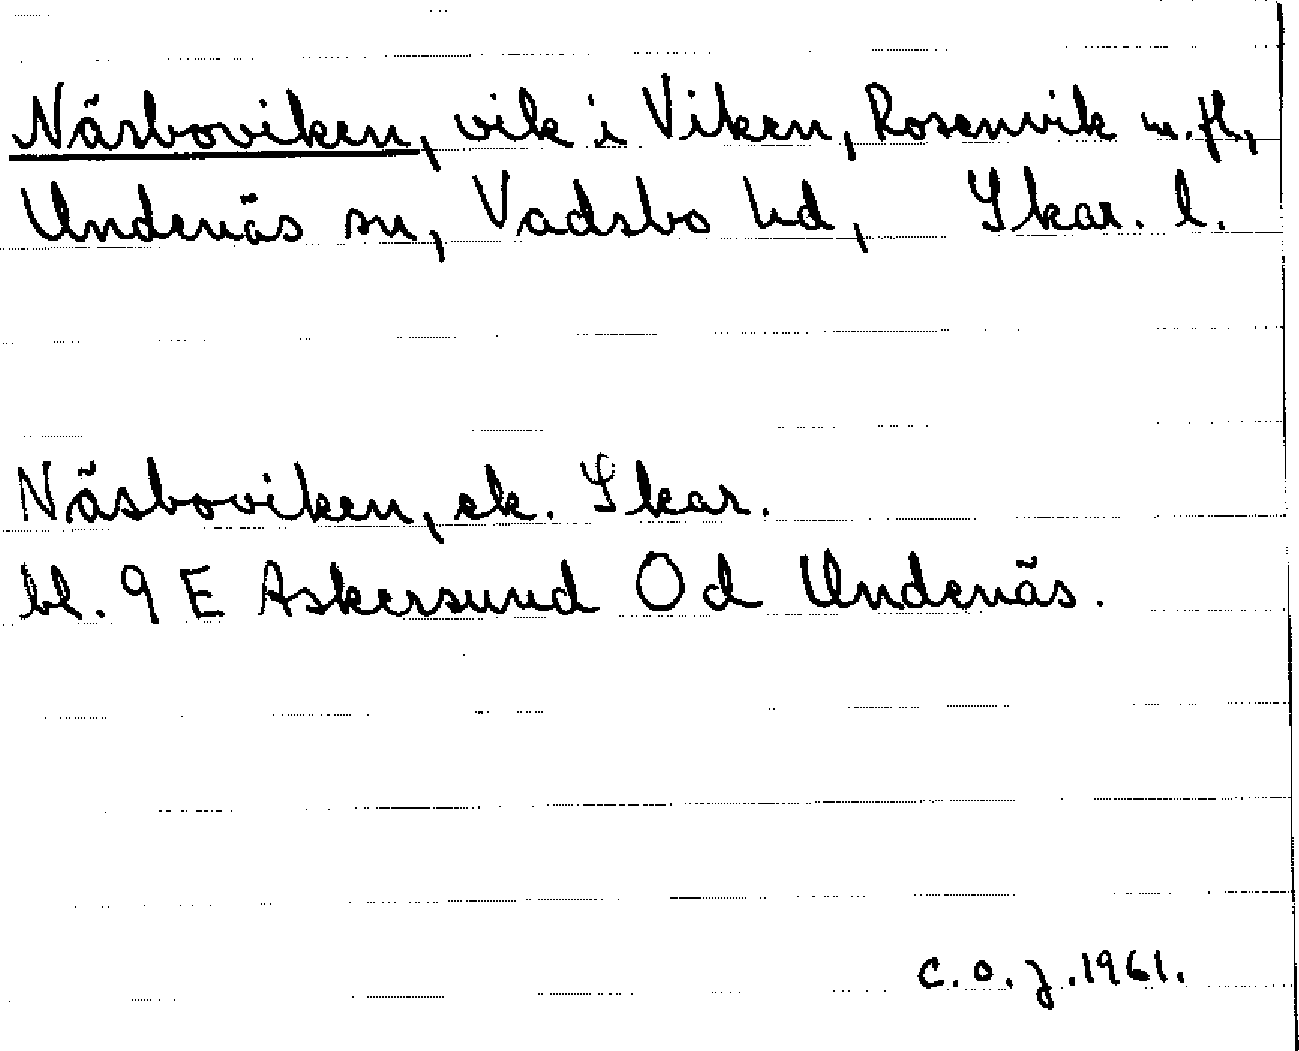 Näsboviken, vik i Viken, Rosenvik m.fl.,
Undenäs sn, Vadsbo hd, Skar. l.
Näsboviken, ek. Skar.
bl. 9 E Askersund 0 d Undenäs.
C.O.J. 1961.